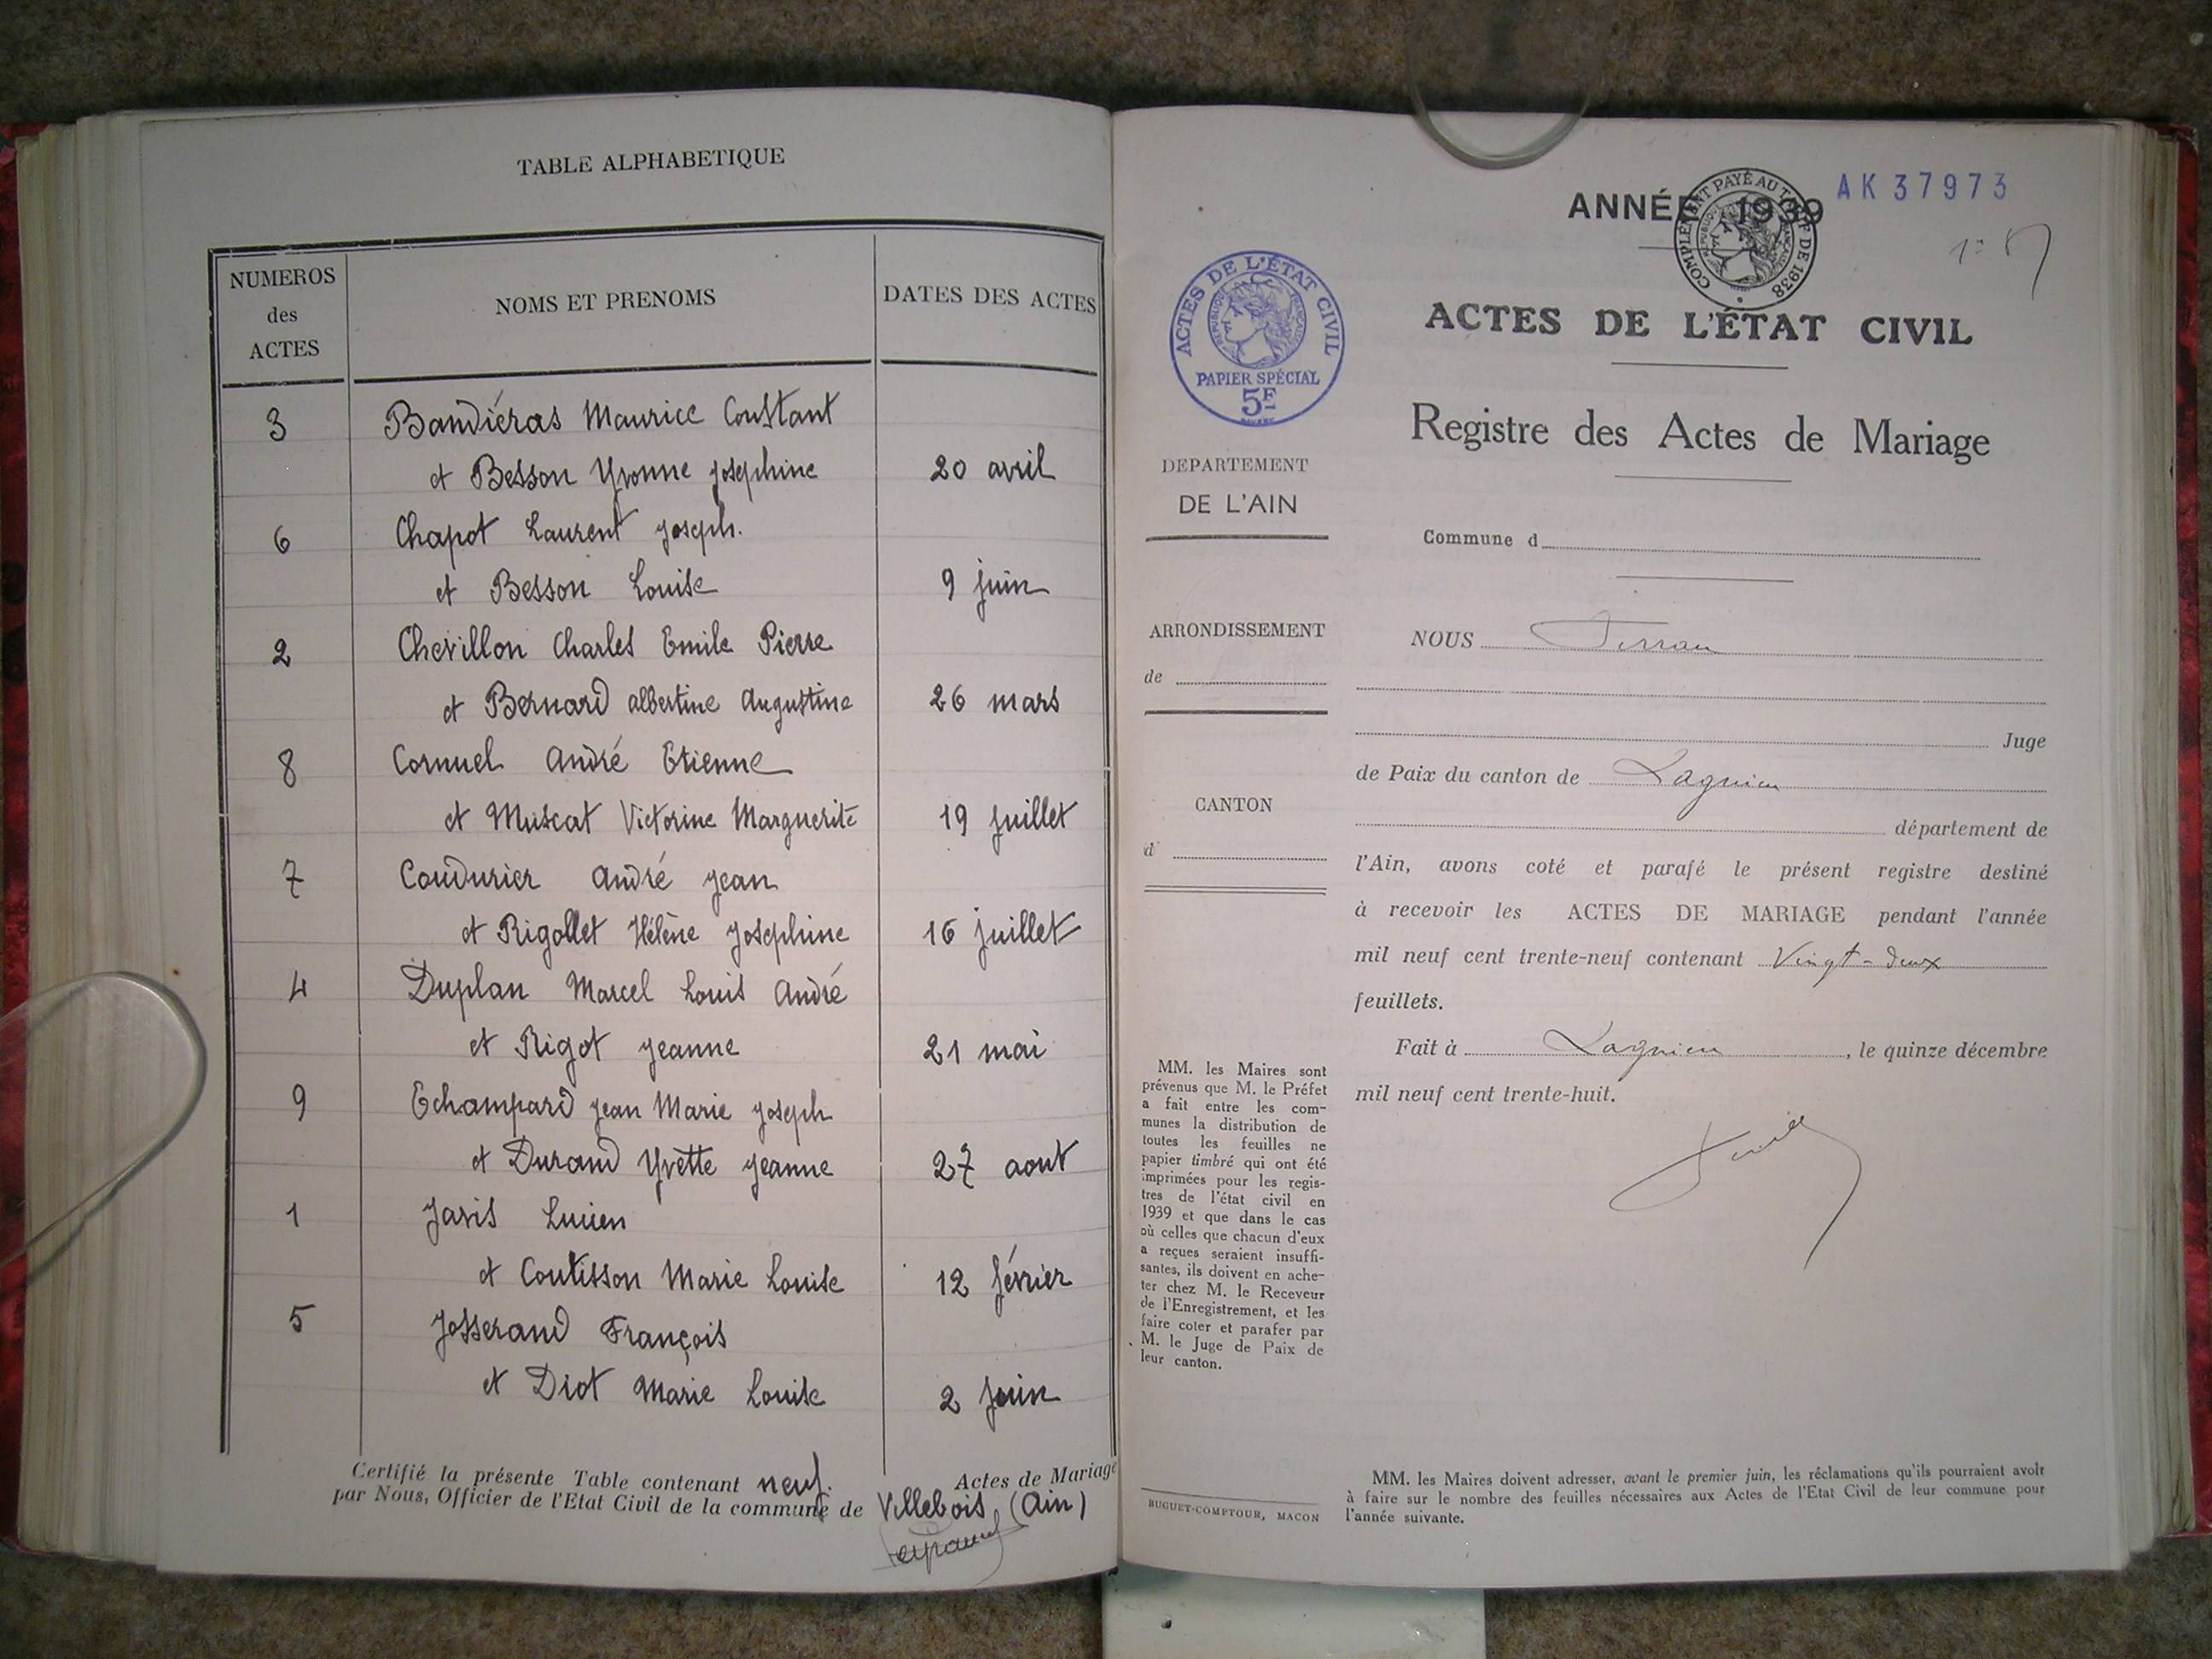 TABLE ALPHABETIQUE
NUMEROS
des
ACTES
NOMS ET PRENOMS
DATES DES ACTES
3 Bandiéras Maurice Constant
et Besson Yvonne Joséphine 20 avril
6 Chapot Laurent Joseph.
et Besson Louise 9 juin
2 Chevillon Charles Emile Pierre
et Bernard Albertine Augustine 26 mars
8 Cornuel André Etienne
et Muscat Victorine Marguerite 19 juillet
7 Coudurier André Jean
et Rigollet Hélène Joséphine 16 juillet
4 Duplan Marcel Louis André
et Rigot Jeanne 21 mai
9 Echampard Jean Marie Joseph
et Durand Yvette Jeanne 27 aout
1 Jaris Lucien
et Coutisson Marie Louise 12 février
5 Josserand François
et Diot Marie Louise 2 juin
Certifié la présente Table contenant neuf. Actes de Mariage
par Nous, Officier de l'Etat Civil de la commune de Villebois (Ain)
ANNÉE 1939
AK 37973
COMPLÉMENT PAYÉ AU TARIF DE 1938
RÉPUBLIQUE FRANÇAISE
ACTES DE L'ÉTAT CIVIL
RÉPUBLIQUE FRANÇAISE
PAPIER SPÉCIAL
5F
ACTES DE L'ÉTAT CIVIL
Registre des Actes de Mariage
DEPARTEMENT
DE L'AIN
ARRONDISSEMENT
de
CANTON
d
MM. les Maires sont
prévenus que M. le Préfet
a fait entre les com-
munes la distribution de
toutes les feuilles ne
papier timbré qui ont été
imprimées pour les regis-
tres de l'état civil en
1939 et que dans le cas
où celles que chacun d'eux
a reçues seraient insuffi-
santes, ils doivent en ache-
ter chez M. le Receveur
de l'Enregistrement, et les
faire coter et parafer par
M. le Juge de Paix de
leur canton.
BUGUET-COMPTOUR, MACON
Commune d
NOUS
Juge
de Paix du canton de Lagnieu
département de
l'Ain, avons coté et parafé le présent registre destiné
à recevoir les ACTES DE MARIAGE pendant l'année
mil neuf cent trente-neuf contenant Vingt-deux
feuillets.
Fait à Lagnieu, le quinze décembre
mil neuf cent trente-huit.
MM. les Maires doivent adresser, avant le premier juin, les réclamations qu'ils pourraient avoir
à faire sur le nombre des feuilles nécessaires aux Actes de l'Etat Civil de leur commune pour
l'année suivante.